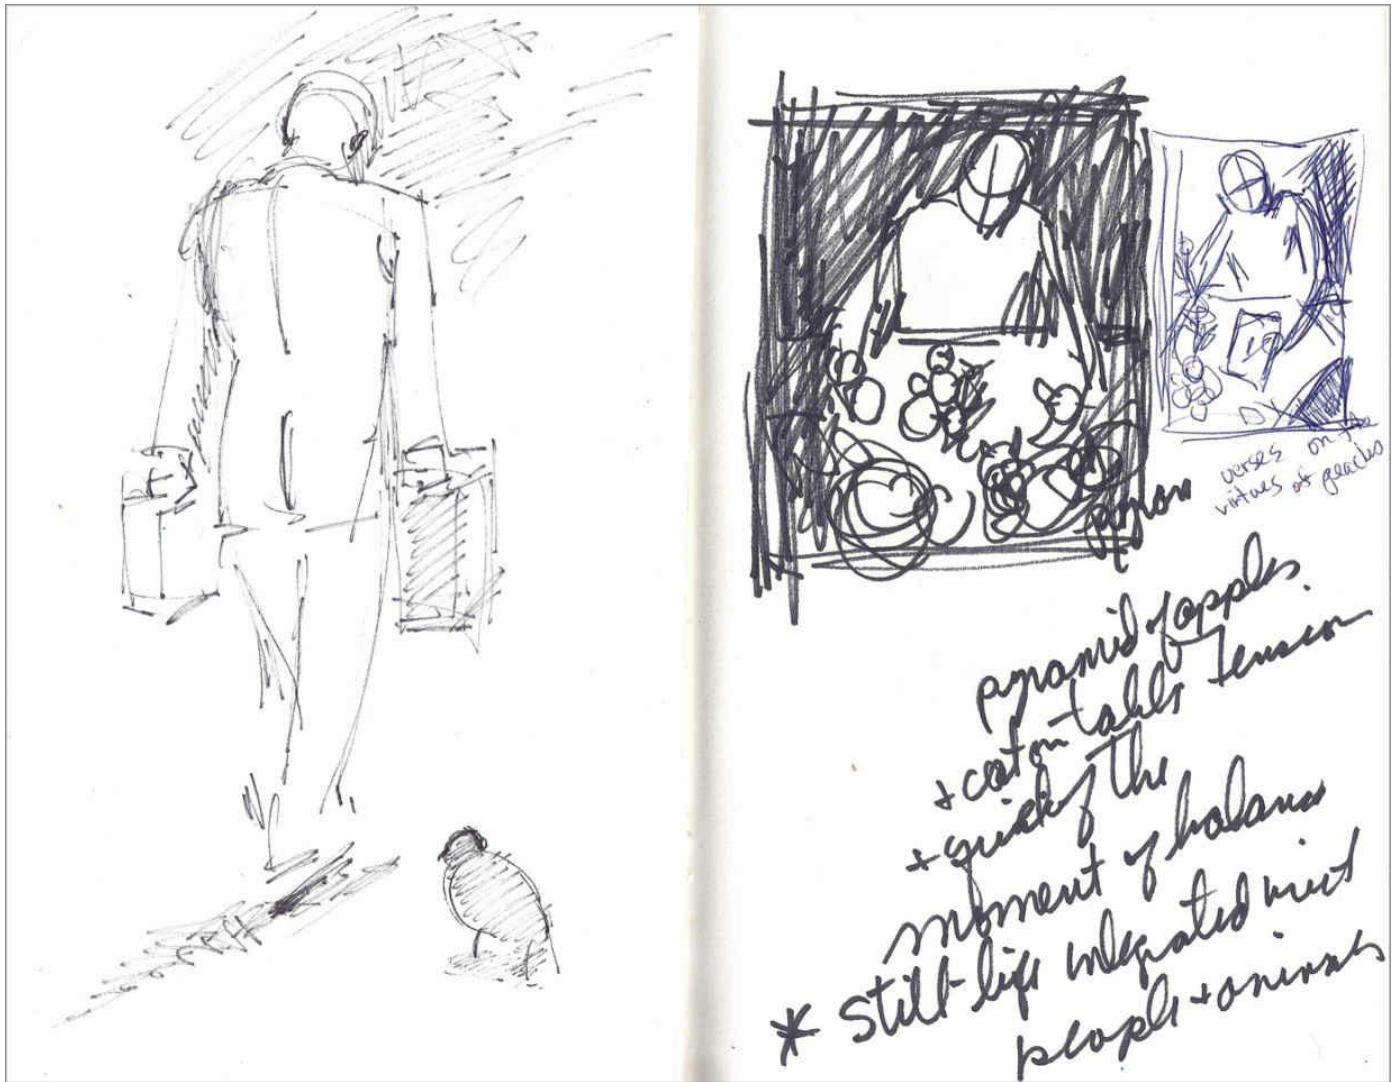 verses on the
virtues of peaches
pyram
pyramid of apples.
+ cat on table tension
+ of the
moment of balance
* Still-life integrated
people + animals